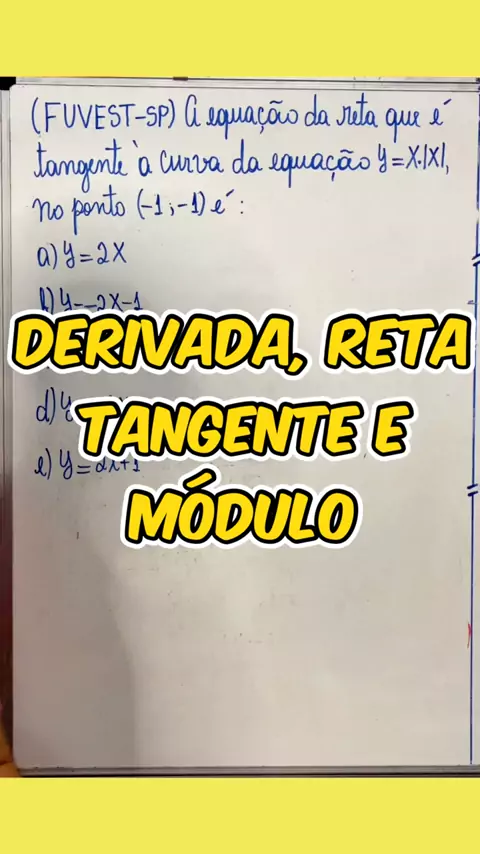 (FUVEST-SP) A equação da reta que é
tangente à curva da equação y=x.|x|,
no ponto (-1;-1) é:
a) y=2x
b) y=-2x-1
DERIVADA, RETA
d) y
TANGENTE E
e) y=2x+1
MÓDULO